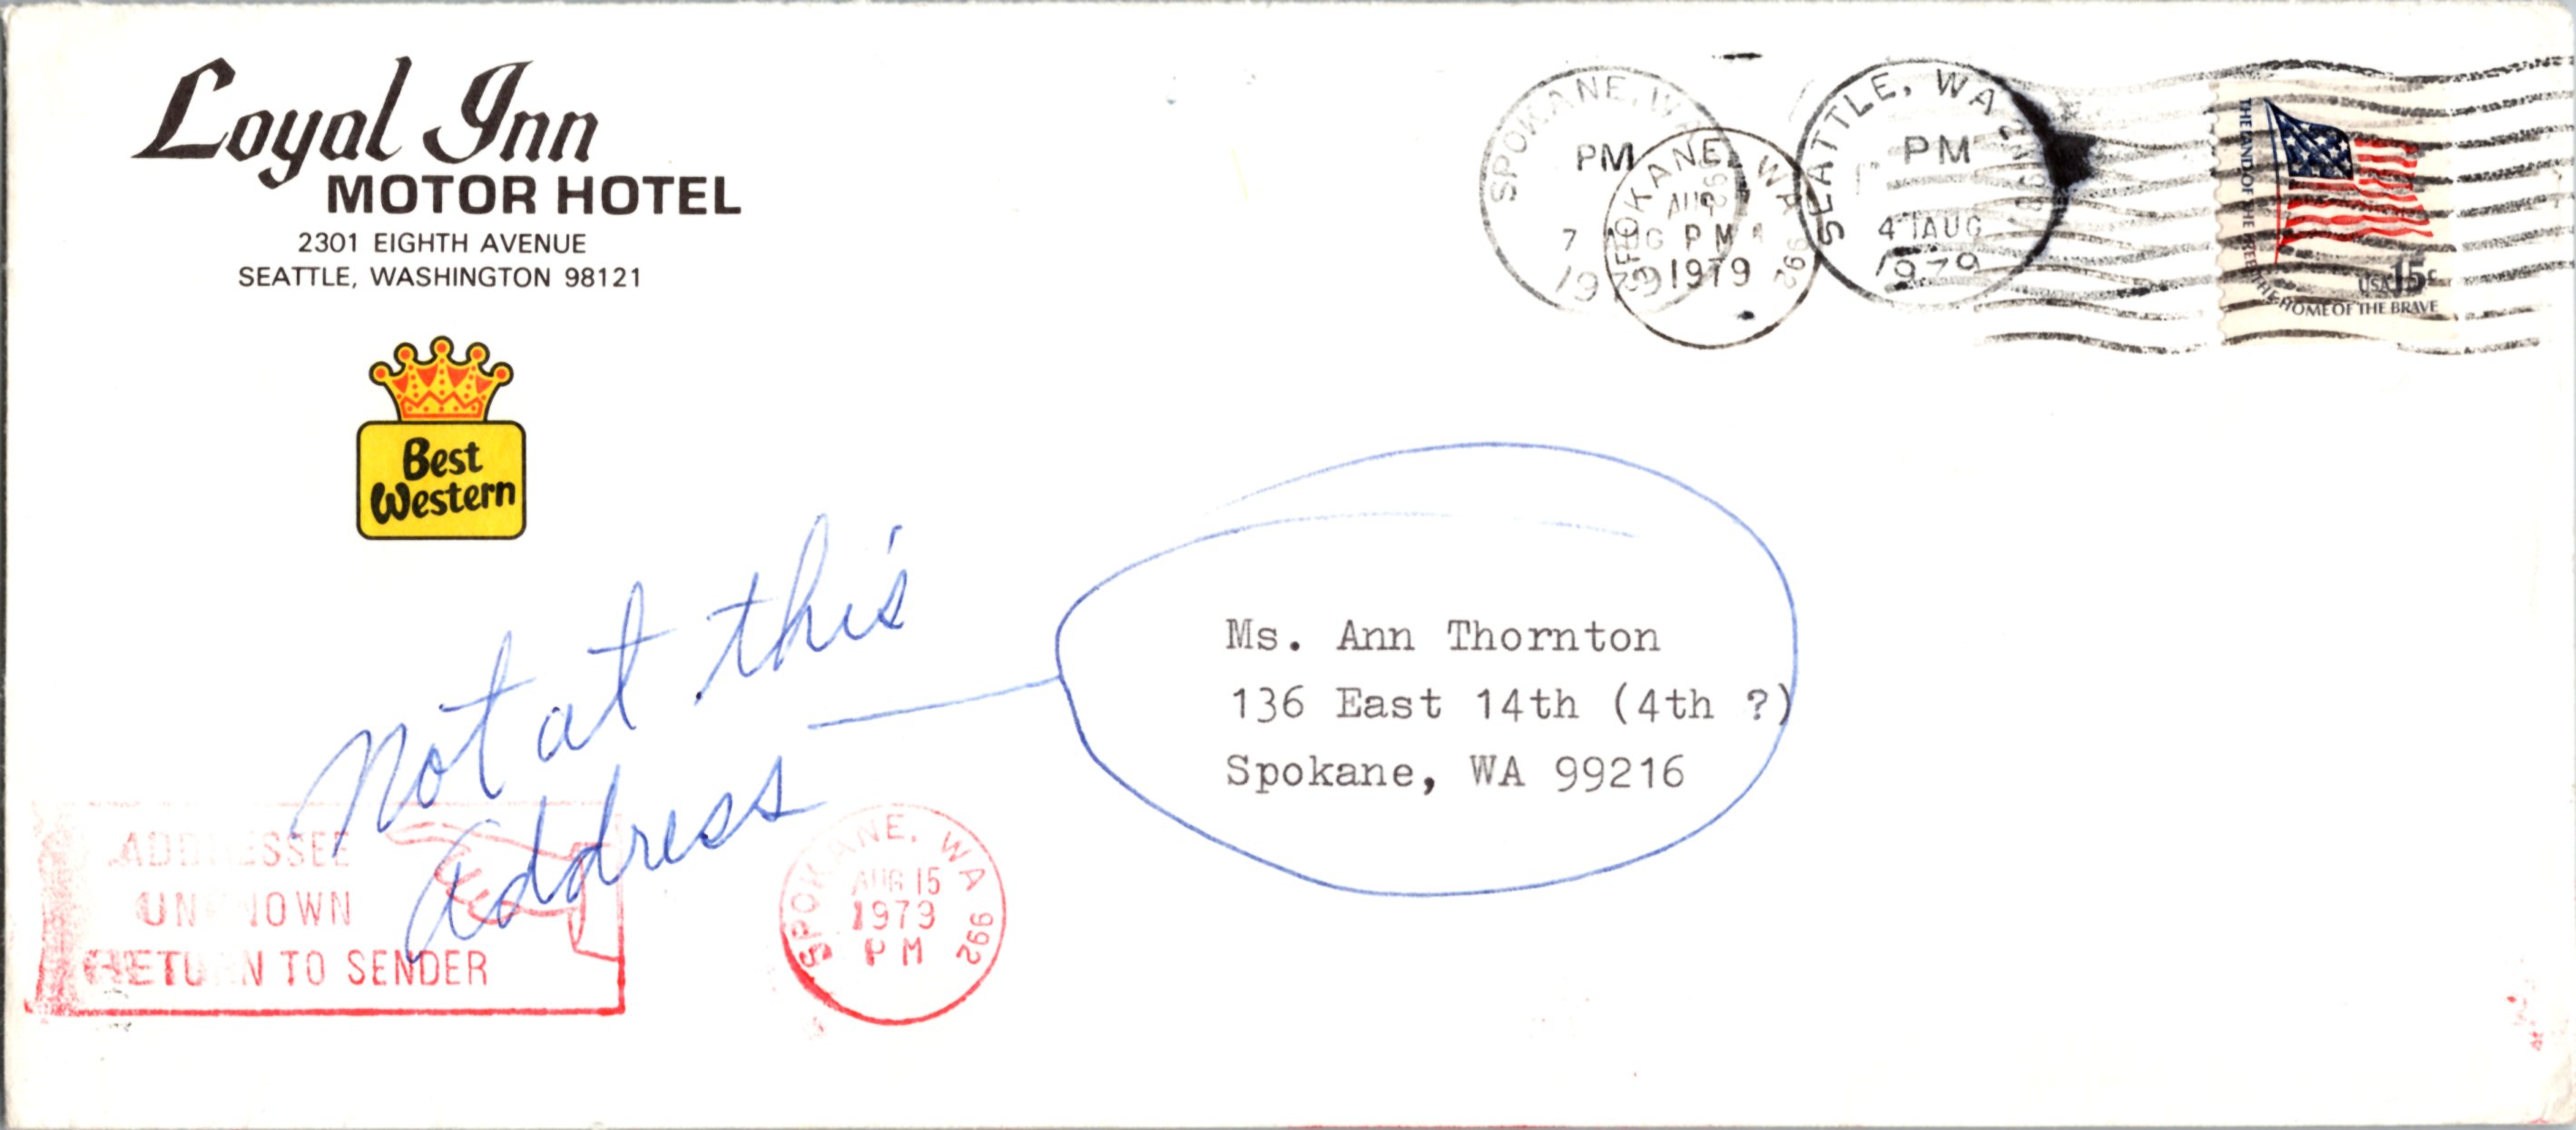 Loyal Inn
MOTOR HOTEL
2301 EIGHTH AVENUE
SEATTLE, WASHINGTON 98121
Best
Western
SPOKANE, WA
PM
7 AUG
SPOKANE, WA 992
AUG
PM
1979
SEATTLE, WA 981
PM
4 AUG
1979
THE LAND OF THE FREE THE HOME OF THE BRAVE
USA 15c
Not at this
address
Ms. Ann Thornton
136 East 14th (4th ?)
Spokane, WA 99216
ADDRESSEE
UNKNOWN
RETURN TO SENDER
SPOKANE, WA 992
AUG 15
1979
PM